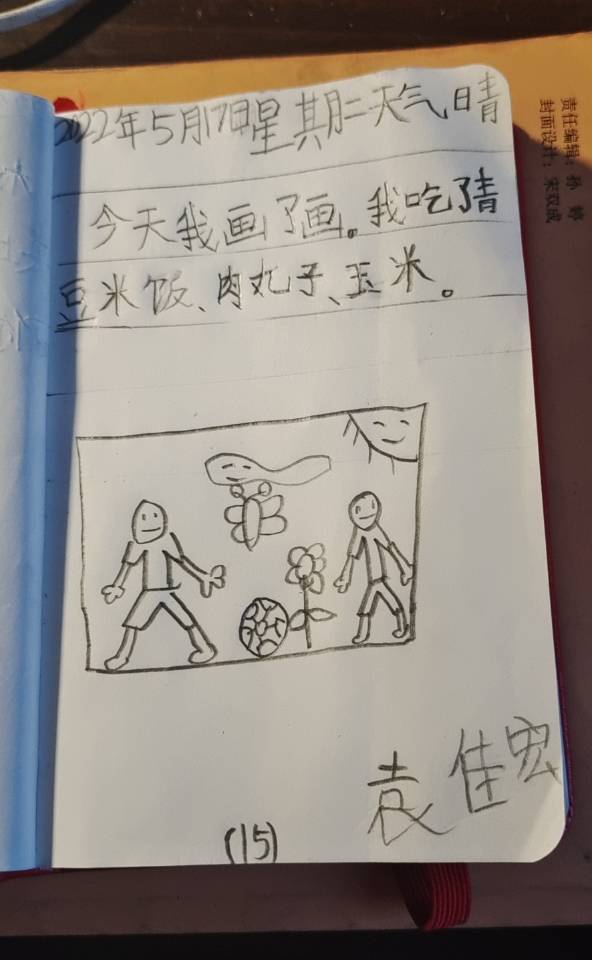 2022年5月17日星期二天气晴
今天我画了画。我吃了青
豆米饭、肉丸子、玉米。
袁佳宏
(15)
责任编辑：孙 婷
封面设计：宋双成